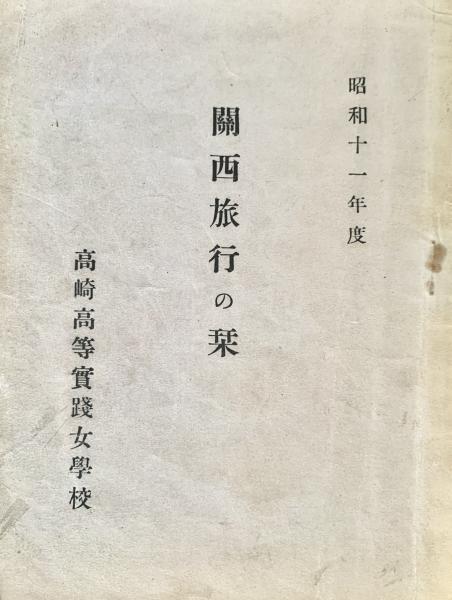 昭和十一年度
關西旅行の栞
高崎高等實踐女學校